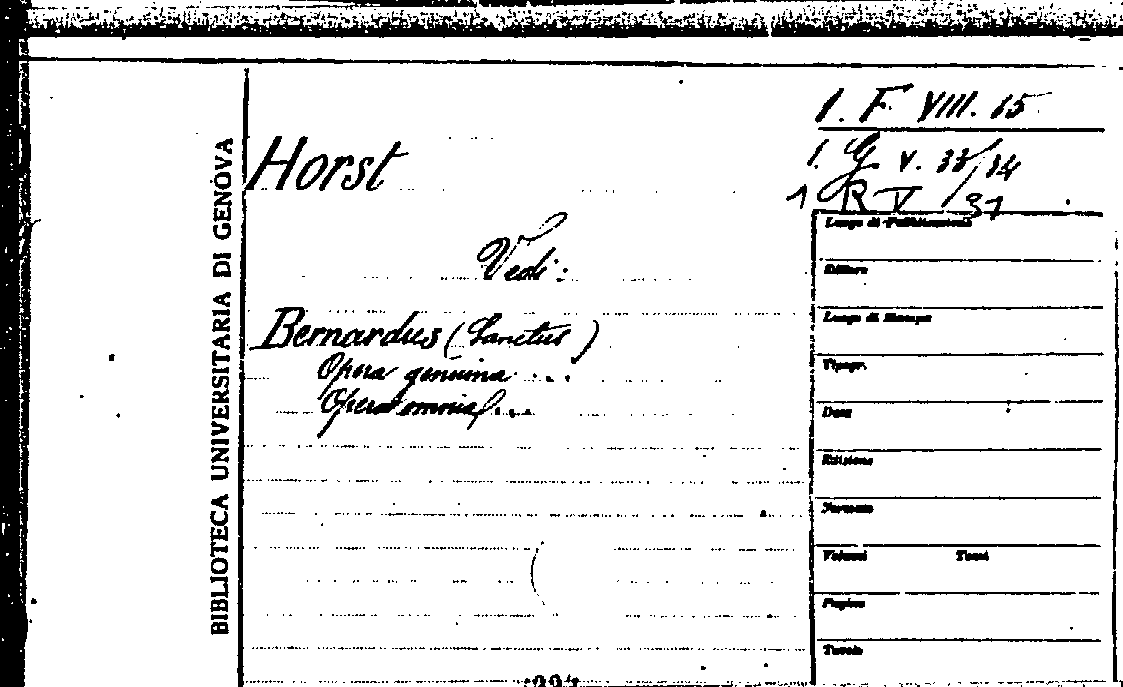 BIBLIOTECA UNIVERSITARIA DI GENOVA
1. F VIII. 15
Horst
1. G. V. 33/34
1 R V /31
Vedi:
Bernardus (Sanctus)
Opera genuina ...
Opera omnia ...
Luogo di Pubblicazione
Editore
Luogo di Stampa
Tipogr.
Data
Edizione
Formato
Volumi Tomi
Pagine
Tavole